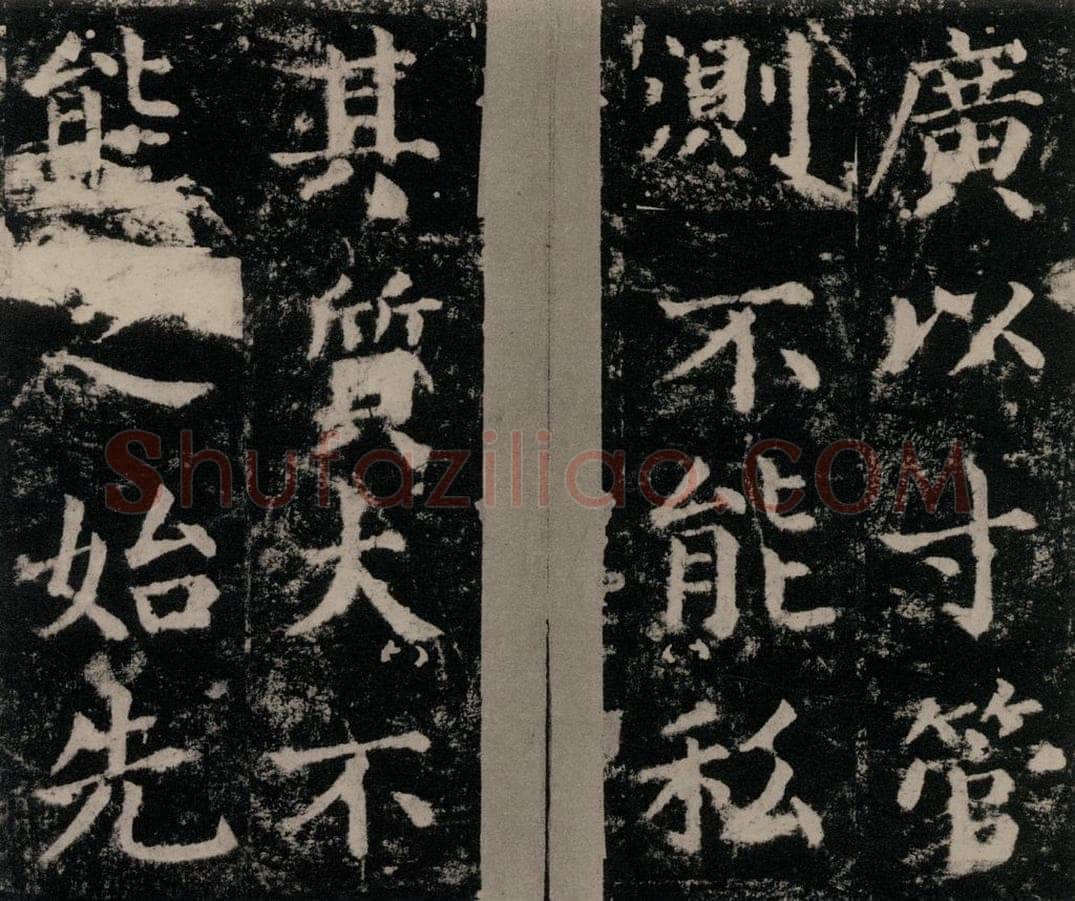 廣以寸管
測不能〻私
其質大〻不
能之始先
Shufaziliao.COM